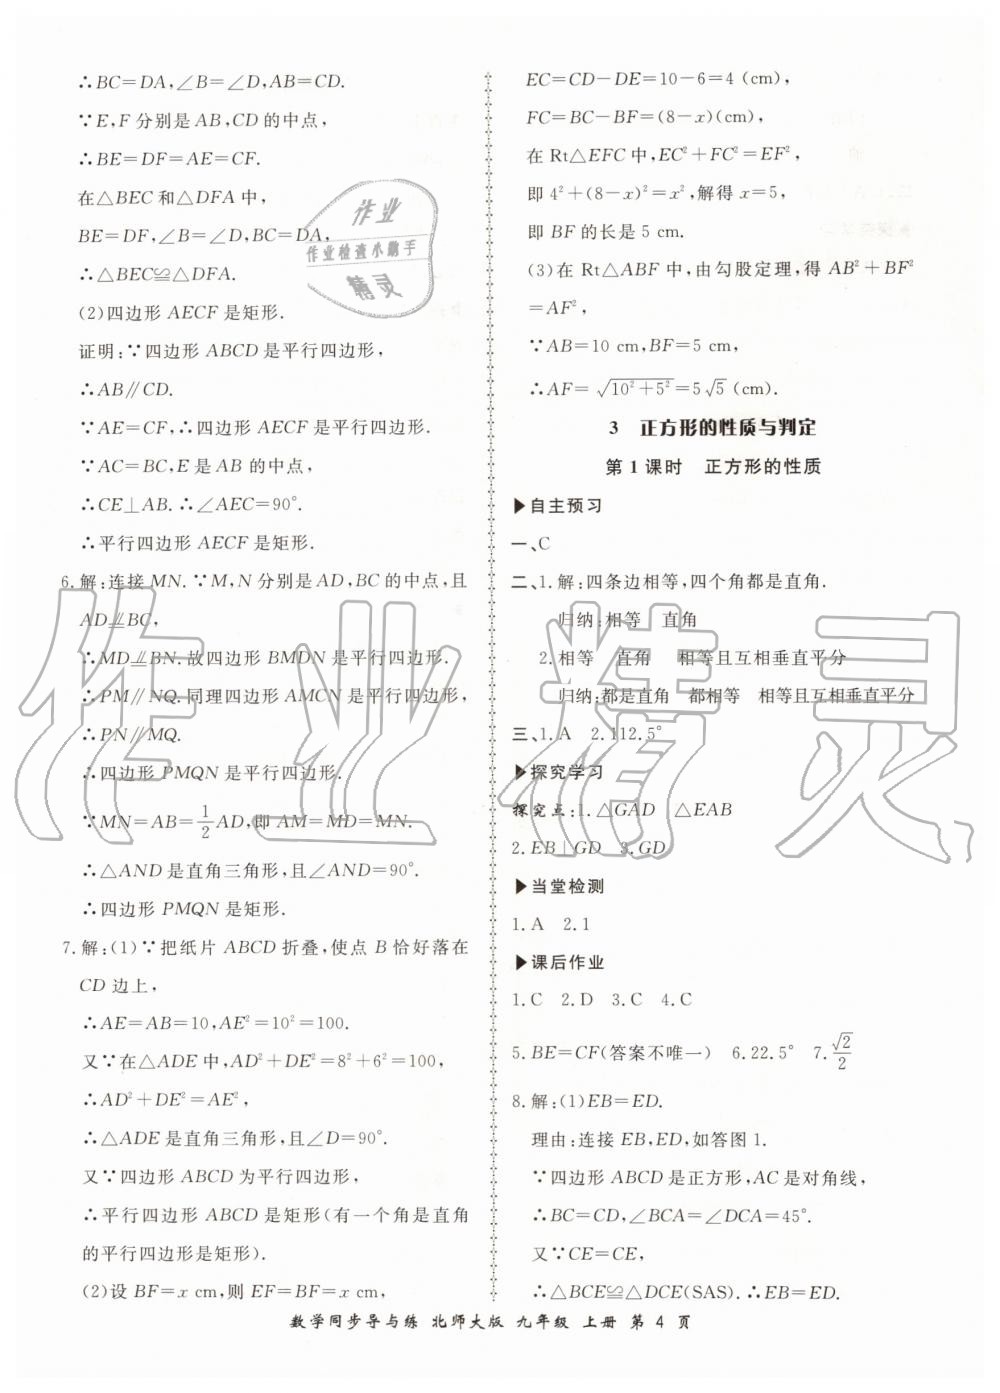 ∴BC=DA,∠B=∠D,AB=CD.
∵E,F分别是AB,CD的中点,
∴BE=DF=AE=CF.
在△BEC和△DFA中,
BE=DF,∠B=∠D,BC=DA,
∴△BEC≌△DFA.
(2)四边形AECF是矩形.
证明:∵四边形ABCD是平行四边形,
∴AB∥CD.
∵AE=CF,∴四边形AECF是平行四边形.
∵AC=BC,E是AB的中点,
∴CE⊥AB.∴∠AEC=90°.
∴平行四边形AECF是矩形.
6.解:连接MN.∵M,N分别是AD,BC的中点,且
AD⫽BC,
∴MD⫽BN.故四边形BMDN是平行四边形.
∴PM∥NQ.同理四边形AMCN是平行四边形,
∴PN∥MQ.
∴四边形PMQN是平行四边形.
∵MN=AB=1/2AD,即AM=MD=MN.
∴△AND是直角三角形,且∠AND=90°.
∴四边形PMQN是矩形.
7.解:(1)∵把纸片ABCD折叠,使点B恰好落在
CD边上,
∴AE=AB=10,AE²=10²=100.
又∵在△ADE中,AD²+DE²=8²+6²=100,
∴AD²+DE²=AE²,
∴△ADE是直角三角形,且∠D=90°.
又∵四边形ABCD为平行四边形,
∴平行四边形ABCD是矩形(有一个角是直角
的平行四边形是矩形).
(2)设BF=x cm,则EF=BF=x cm,
EC=CD−DE=10−6=4(cm),
FC=BC−BF=(8−x)(cm),
在Rt△EFC中,EC²+FC²=EF²,
即4²+(8−x)²=x²,解得x=5,
即BF的长是5 cm.
(3)在Rt△ABF中,由勾股定理,得AB²+BF²
=AF²,
∵AB=10 cm,BF=5 cm,
∴AF=√(10²+5²)=5√5(cm).
3 正方形的性质与判定
第1课时 正方形的性质
▶自主预习
一、C
二、1.解:四条边相等,四个角都是直角.
归纳:相等 直角
2.相等 直角 相等且互相垂直平分
归纳:都是直角 都相等 相等且互相垂直平分
三、1.A 2.112.5°
▶探究学习
探究点:1.△GAD △EAB
2.EB⊥GD 3.GD
▶当堂检测
1.A 2.1
▶课后作业
1.C 2.D 3.C 4.C
5.BE=CF(答案不唯一) 6.22.5° 7.√2/2
8.解:(1)EB=ED.
理由:连接EB,ED,如答图1.
∵四边形ABCD是正方形,AC是对角线,
∴BC=CD,∠BCA=∠DCA=45°.
又∵CE=CE,
∴△BCE≌△DCE(SAS).∴BE=ED.
数学同步导与练 北师大版 九年级 上册 第4页
作业
作业检查小助手
精灵
作业精灵